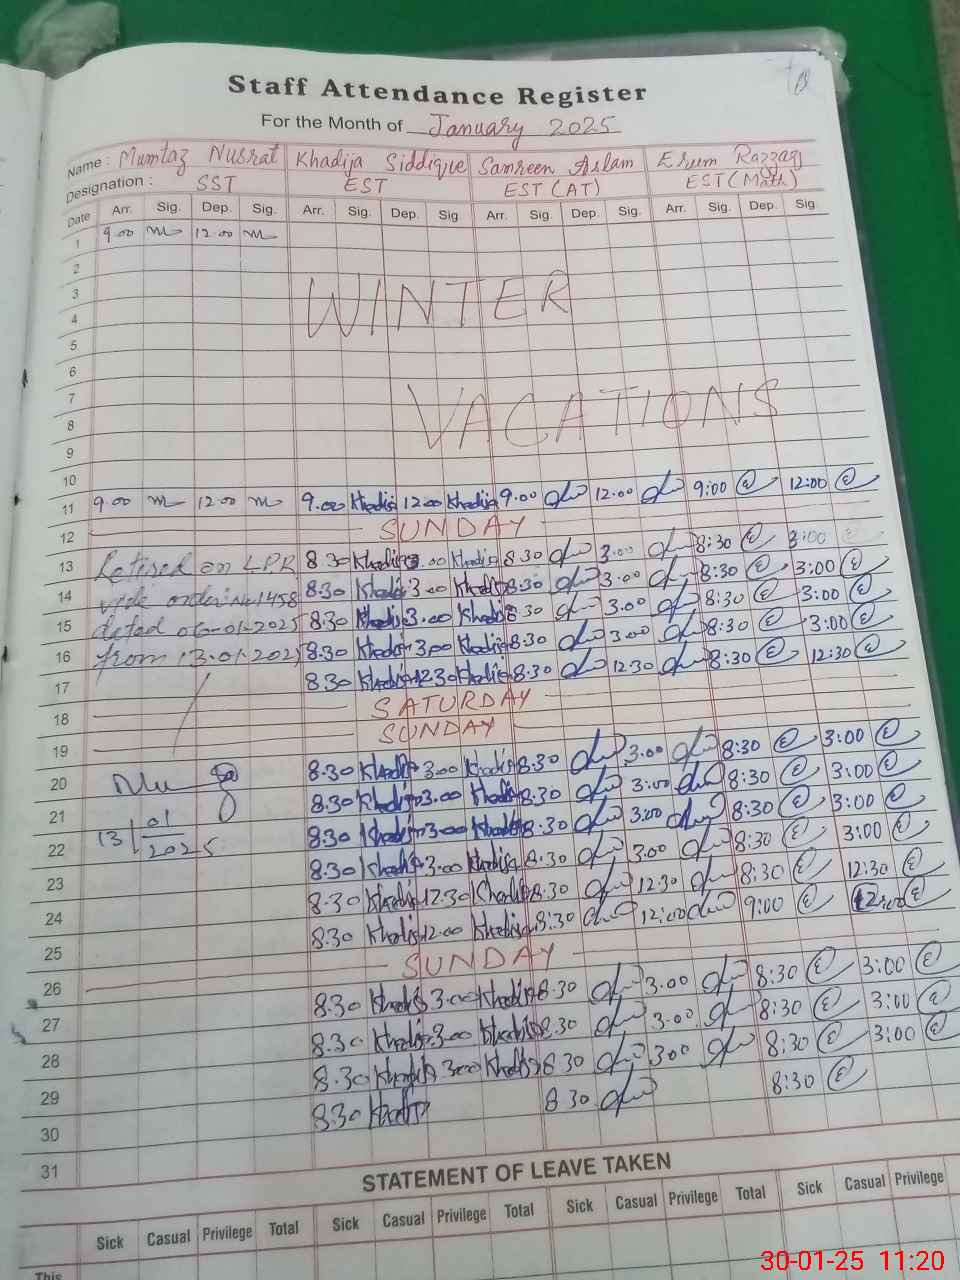 Staff Attendance Register
For the Month of January 2025
Name : Mumtaz Nusrat Khadija Siddique Samreen Aslam Erum Razzaq
Designation : SST EST EST (AT) EST (Math)
Date Arr. Sig. Dep. Sig. Arr. Sig. Dep. Sig Arr. Sig. Dep. Sig. Arr. Sig. Dep. Sig.
1 9.00 12.00
2
3 WINTER
4
5
6
7
8 VACATIONS
9
10
11 9.00 12.00 9.00 Khadija 12.00 Khadija 9.00 12.00 9:00 12:00
12 SUNDAY
13 Retired on LPR 8.30 Khadija 3.00 Khadija 8.30 3.00 8:30 3:00
14 vide order No 1458 8.30 Khadija 3.00 Khadija 8.30 3.00 8:30 3:00
15 dated 06-01-2025 8.30 Khadija 3.00 Khadija 8.30 3.00 8:30 3:00
16 from 13.01.2025 8.30 Khadija 3.00 Khadija 8.30 3.00 8:30 3:00
17 8.30 Khadija 12.30 Khadija 8.30 12.30 8:30 12:30
18 SATURDAY
19 SUNDAY
20 8.30 Khadija 3.00 Khadija 8.30 3.00 8:30 3:00
21 8.30 Khadija 3.00 Khadija 8.30 3:00 8:30 3:00
22 13/01/2025 8.30 Khadija 3.00 Khadija 8.30 3:00 8:30 3:00
23 8.30 Khadija 3.00 Khadija 8.30 3.00 8:30 3:00
24 8.30 Khadija 12.30 Khadija 8.30 12.30 8:30 12:30
25 8.30 Khadija 12.00 Khadija 8:30 12:00 9:00 12:00
26 SUNDAY
27 8.30 Khadija 3.00 Khadija 8.30 3.00 8:30 3:00
28 8.30 Khadija 3.00 Khadija 8.30 3.00 8:30 3:00
29 8.30 Khadija 3.00 Khadija 8.30 3.00 8:30 3:00
30 8.30 Khadija 8.30 8:30
31
STATEMENT OF LEAVE TAKEN
Sick Casual Privilege Total Sick Casual Privilege Total Sick Casual Privilege Total Sick Casual Privilege
This
30-01-25 11:20